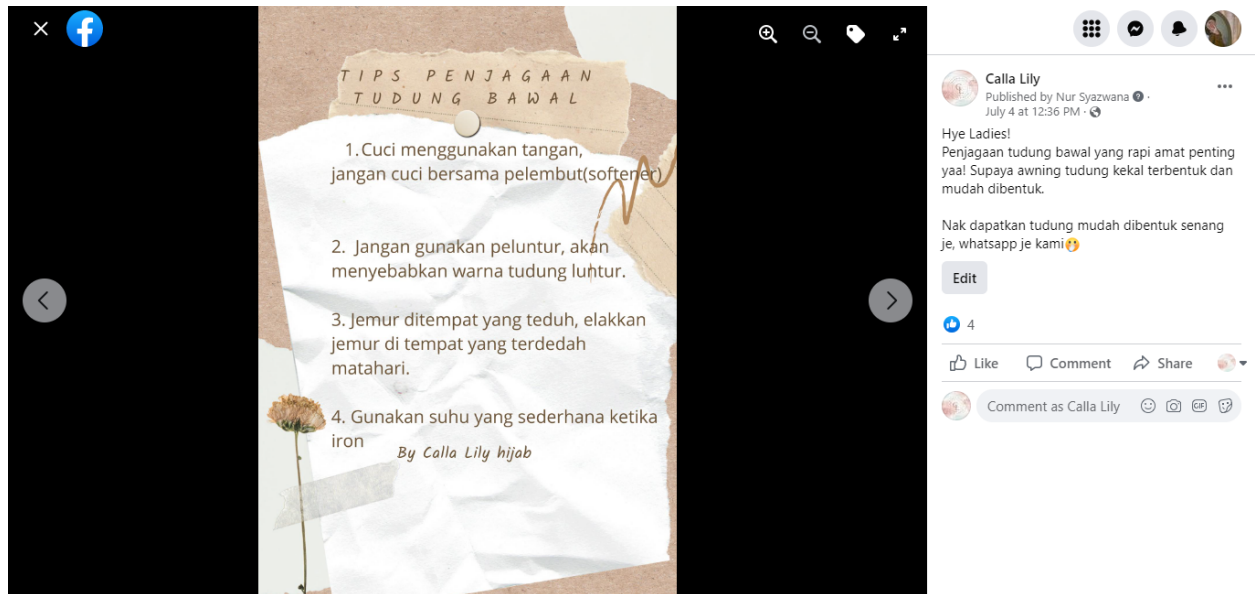 TIPS PENJAGAAN
TUDUNG BAWAL
1.Cuci menggunakan tangan,
jangan cuci bersama pelembut(softener)
2. Jangan gunakan peluntur, akan
menyebabkan warna tudung luntur.
3. Jemur ditempat yang teduh, elakkan
jemur di tempat yang terdedah
matahari.
4. Gunakan suhu yang sederhana ketika
iron
By Calla Lily hijab
Calla Lily
Published by Nur Syazwana ·
July 4 at 12:36 PM ·
Hye Ladies!
Penjagaan tudung bawal yang rapi amat penting
yaa! Supaya awning tudung kekal terbentuk dan
mudah dibentuk.
Nak dapatkan tudung mudah dibentuk senang
je, whatsapp je kami
Edit
4
Like Comment Share
Comment as Calla Lily GIF